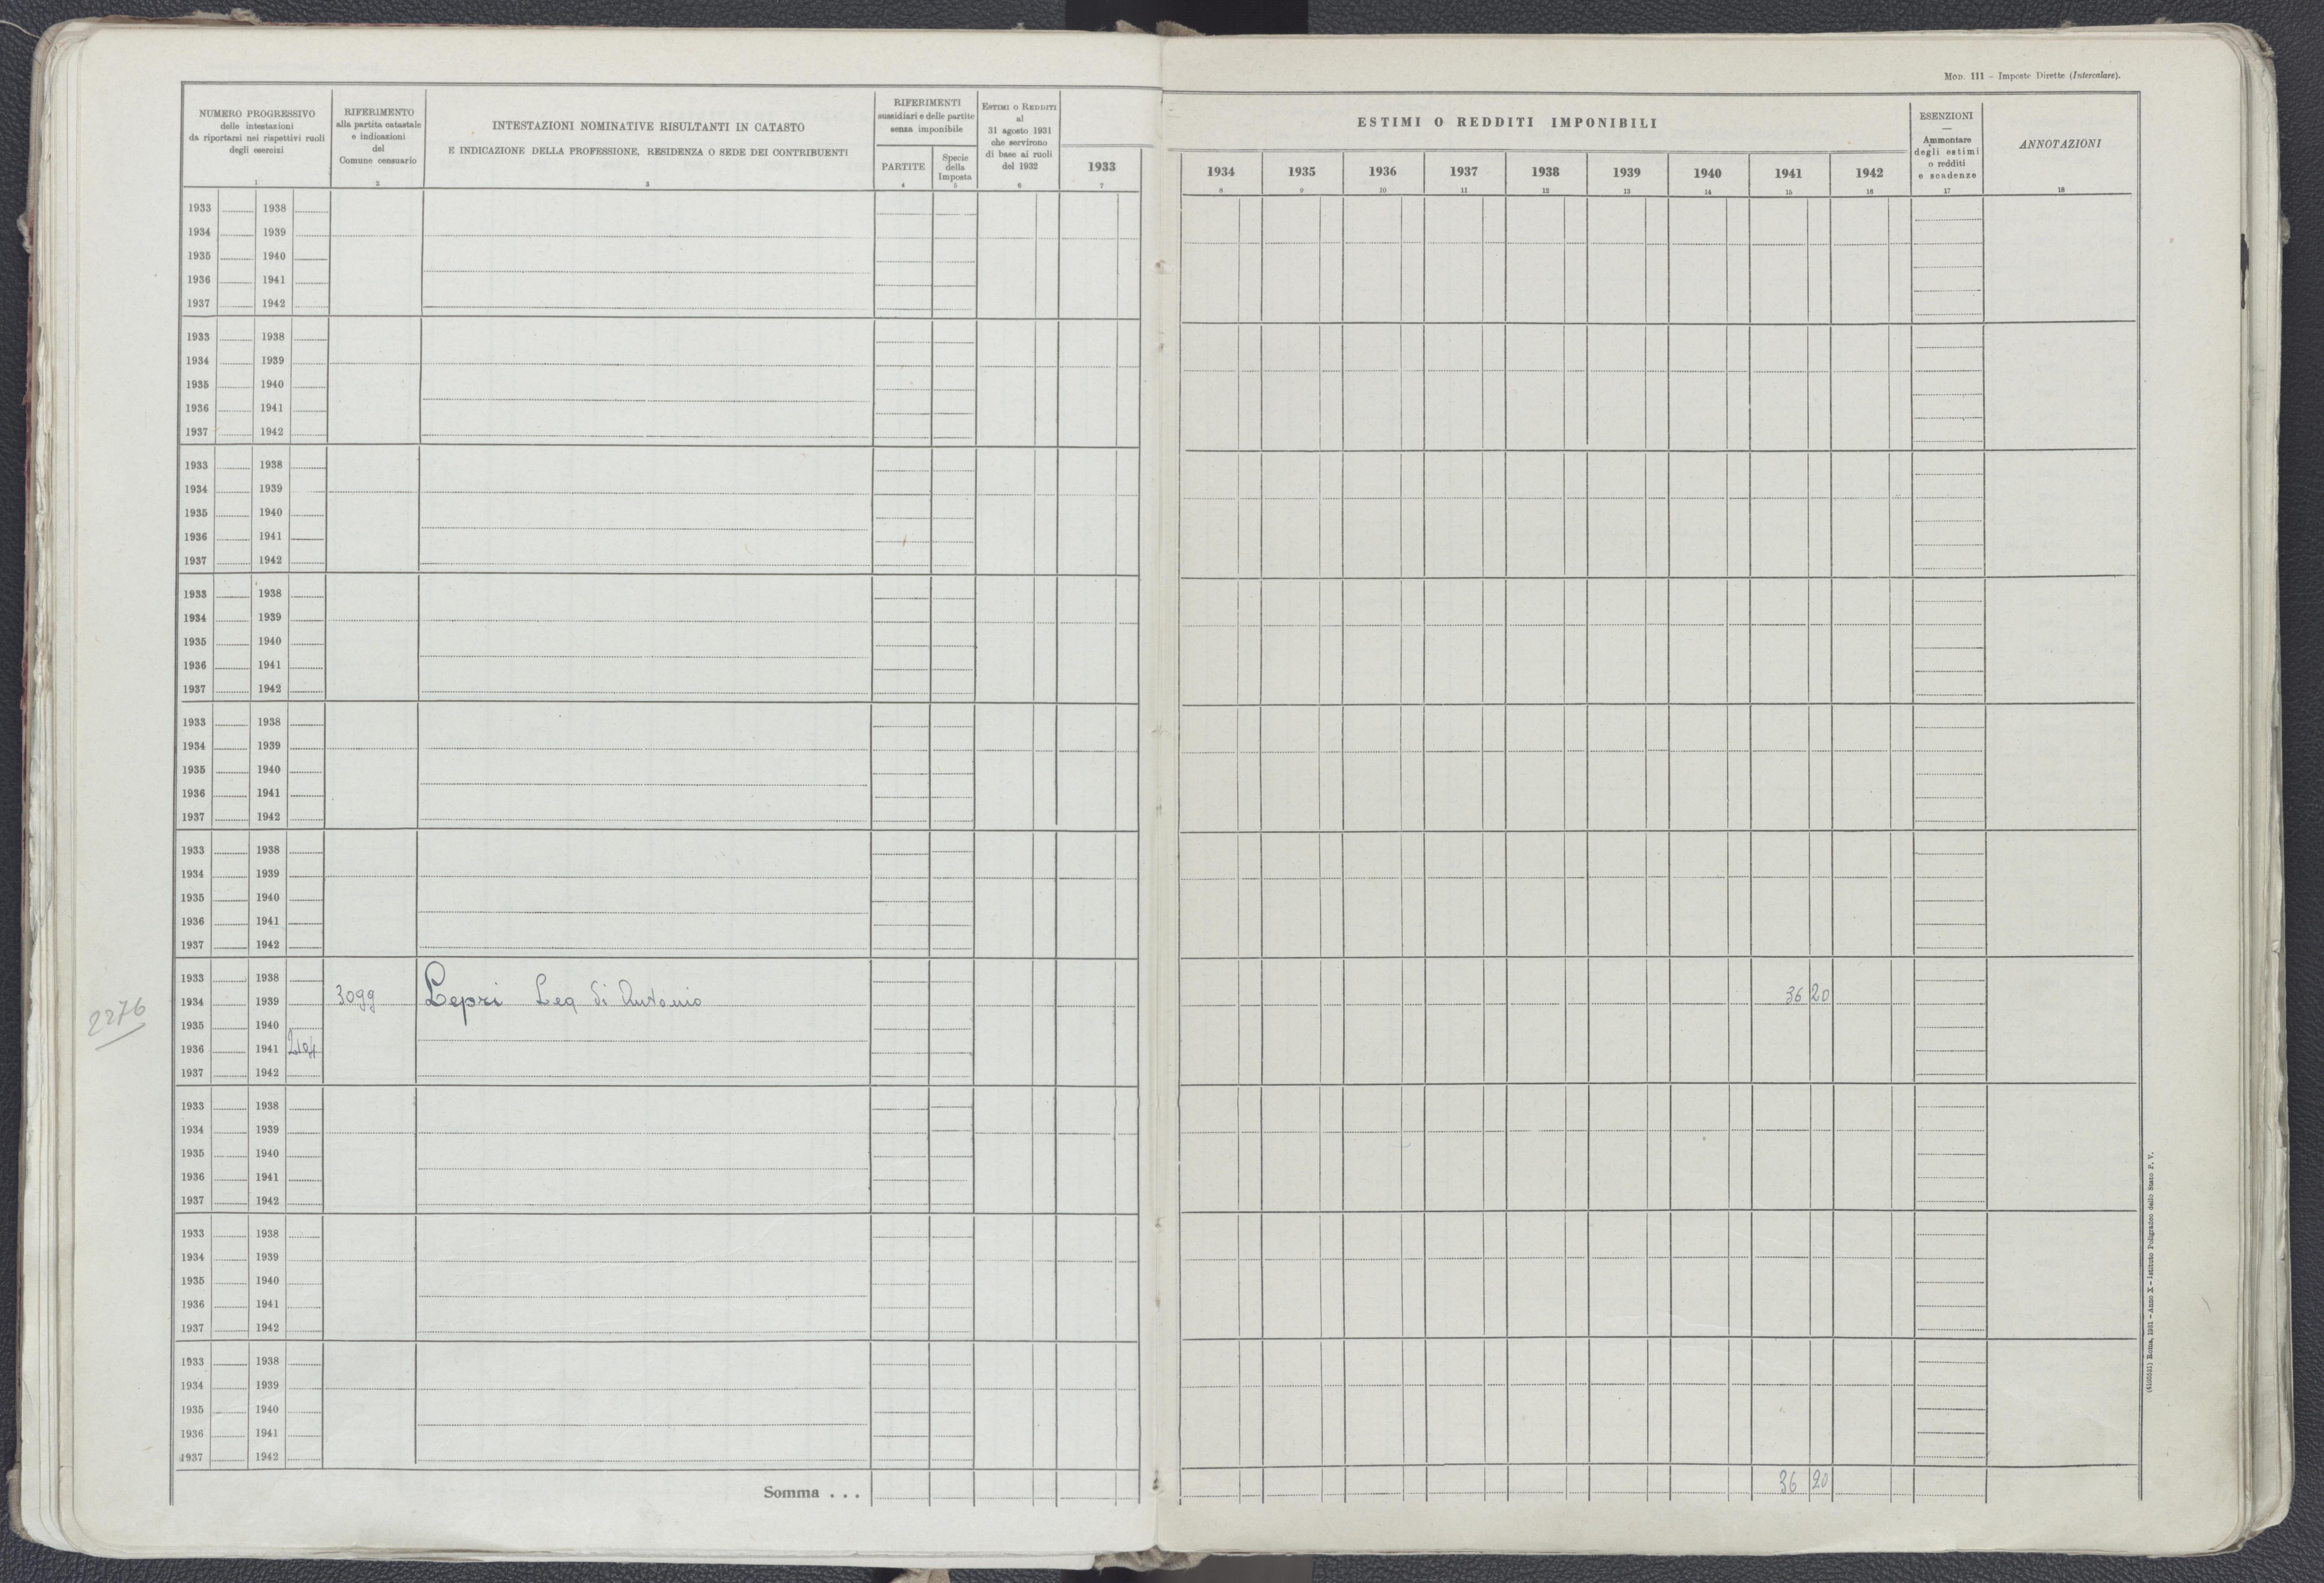 Mod. 111 - Imposte Dirette (Intercalare).
NUMERO PROGRESSIVO
delle intestazioni
da riportarsi nei rispettivi ruoli
degli esercizi
1
RIFERIMENTO
alla partita catastale
e indicazioni
del
Comune censuario
2
INTESTAZIONI NOMINATIVE RISULTANTI IN CATASTO
E INDICAZIONE DELLA PROFESSIONE, RESIDENZA O SEDE DEI CONTRIBUENTI
3
RIFERIMENTI
sussidiari e delle partite
senza imponibile
PARTITE
4
Specie
della
Imposta
5
ESTIMI O REDDITI
al
31 agosto 1931
che servirono
di base ai ruoli
del 1932
6
1933
7
ESTIMI O REDDITI IMPONIBILI
1934 1935 1936 1937 1938 1939 1940 1941 1942
8 9 10 11 12 13 14 15 16
ESENZIONI
—
Ammontare
degli estimi
o redditi
e scadenze
17
ANNOTAZIONI
18
1933 1938
1934 1939
1935 1940
1936 1941
1937 1942
1933 1938
1934 1939
1935 1940
1936 1941
1937 1942
1933 1938
1934 1939
1935 1940
1936 1941
1937 1942
1933 1938
1934 1939
1935 1940
1936 1941
1937 1942
1933 1938
1934 1939
1935 1940
1936 1941
1937 1942
1933 1938
1934 1939
1935 1940
1936 1941
1937 1942
1933 1938
1934 1939 3099 Lepri Lea di Antonio 36 20
1935 1940
2276
1936 1941
1937 1942
1933 1938
1934 1939
1935 1940
1936 1941
1937 1942
1933 1938
1934 1939
1935 1940
1936 1941
1937 1942
1933 1938
1934 1939
1935 1940
1936 1941
1937 1942
Somma . . . 36 20
(4100551) Roma, 1931 - Anno X - Istituto Poligrafico dello Stato P. V.